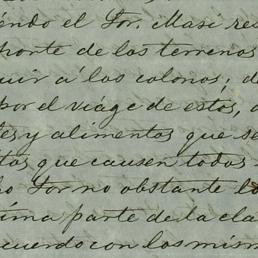 endo el Sor. Masi res
porte de los terrenos
uir á los colonos; d
por el viáge de estos, a
tes y alimentos que se
tos que causen todos
ho Sor no obstante lo
ima parte de la cla
cuerdo con los mism